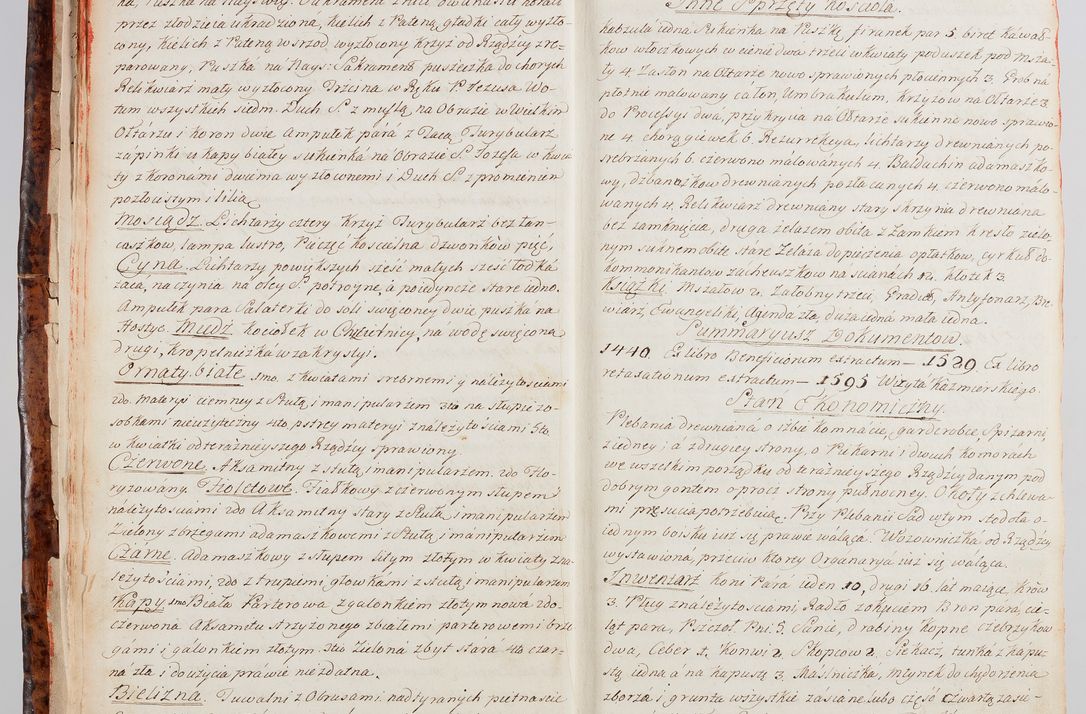 przez złodzieia ukradziona, Kielich z Pateną gładki cały wyzło-
cony, Kielich z Pateną wsrzod wyzłocony Krzyż od Rządźcy zre-
parowany, Puszka na Nays: Sakrament puszeczka do chorych
Relikwiarz mały wyzłocony Trzcina w Ręku P. Jezusa Wo-
tum wszystkich siedm. Duch S. z myłką na Obrazie w Wielkim
Ołtarzu i koron dwie Ampułek para z Tacą Turybularz
zapinki u kapy białey sukienka na Obrazie S. Jozefa w kwia-
ty z koronami dwiema wyzłocnemi i Duch S. z promieniem
pozłocistym i lilia
Mosiądz. Lichtarzy cztery Krzyż Turybularz bez łan-
caszkow, lampa lustro, Pieczęć kościelna dzwonków pięć,
Cyna. Lichtarzy powiększych sześć małych sześć łodka
żaca, naczynia na oley S. potroyne, a poiedyncze stare iedno.
Ampułek para Salaterki do soli swięconey dwie puszka na
Hostye. Miedź kociołek w Chrzcielnicy, na wodę swięconą
drugi, kropelniczka w zakrystyi.
Ornaty białe. 1mo. z kwiatami srebrnemi y należytosciami
2do. materyi ciemney z Stułą i manipularzem 3tio na stupie zo-
sobkami nieużyteczny 4to, pstrey materyi z należytosciami 5to.
w kwiatki od teraźnieyszego Rządźcy sprawiony.
Czerwone. Aksamitny z stułą i manipularzem. 2do Flo-
ryzowany. Fioletowe. Fiałkowy z czerwonym stupem i
należytosciami 2do Aksamitny stary z Stułą i manipularzem
Zielony z brzegami adamaszkowemi z Stułą i manipularzem
Czarne. Adamaszkowy z stupem białym złotym w kwiaty zna-
leżytościami, 2do z trupiemi głowkami z stułą i manipularzem
Kapy 1mo Biała Parterowa z galonkiem złotym nowa 2do
czerwona Aksametu strzyżonego z białemi parterowemi brze-
gami i galonkiem złotym. 3tio Zielona zbyt stara 4to czar-
na zła i do użycia prawie niezdatna.
Bielizna. Tuwalni z Obrusami nadtyranych piętnascie
Inne Sprzęty Kościoła.
kabzula iedna Sukienka na Puszkę, firanek par 5. biret kawał-
kow włoczkowych w cienie dwa trzeci w kwiaty poduszek pod msza-
ły 4. Zasłon na Ołtarze nowo sprawionych płociennych 3. Grob na
płotnie malowany całon, Umbrakulum, krzyżow na Ołtarze 3.
do Processyi dwa, przykrycia na Ołtarze sukienne nowo sprawio-
ne 4. chorągiewek 6. Rezurrekcya, lichtarzy drewnianych po-
srebrzanych 6. czerwono malowanych 4. Baldachin adamaszko-
wy, dzbanoszkow drewnianych pozłacanych 4. czerwono malo-
wanych 4. Relikwiarz drewniany stary skrzynia drewniana
bez zamknięcia, druga żelazem obita z zamkiem krzesło zielo-
nym suknem obite stare Zelaza do pieczenia opłatkow, cyrkuł do
kommonikantow zacheuszkow na scianach 12. klozek 3.
Książki. Mszałow 2. Załobny trzeci, Graduał, Antyfonarz, Bre-
wiarz, Ewangeliki, Agenda zła, duża iedna mała iedna.
Summaryusz Dokumentow.
1440. Ex libro Beneficiorum extractum — 1529. Ex libro
retaxationum extractum — 1595 Wizyta Kazimierskiego.
Stan Ekonomiczny.
Plebania drewniana o izbie komnacie, garderobce, Spizarni,
z iedney; a z drugiey strony, o Piekarni i dwuch komorach
we wszelkim porządku od teraźnieyszego Rządźcy danym pod
dobrym gontem oprocz strony pułnocney. Okoły z chlewa-
mi przesucia potrzebuią. Przy Plebanii Sad w tym stodoła o-
iednym boisku iuż się prawie waląca. Wozowniczka od Rządźcy
wystawiona, przeciw ktorey Organarya iuż się waląca.
Inwentarz koni Para ieden 10, drugi 16. lat maiące, krow
3. Pług z należytosciami, Radło z okuciem Bron para, cie-
ląt para, Pszczoł Pni. 5. Sanie, drabiny kopne czebrzykow
dwa, Ceber 1. Konwi 2. Skopcow 2. Siekacz, tunka z kapu-
stą iedna a na kapustę 3. Maślniczka, młynek do chędożenia
zboża i grunta wszystkie zasiane lubo część czwartą zasie-